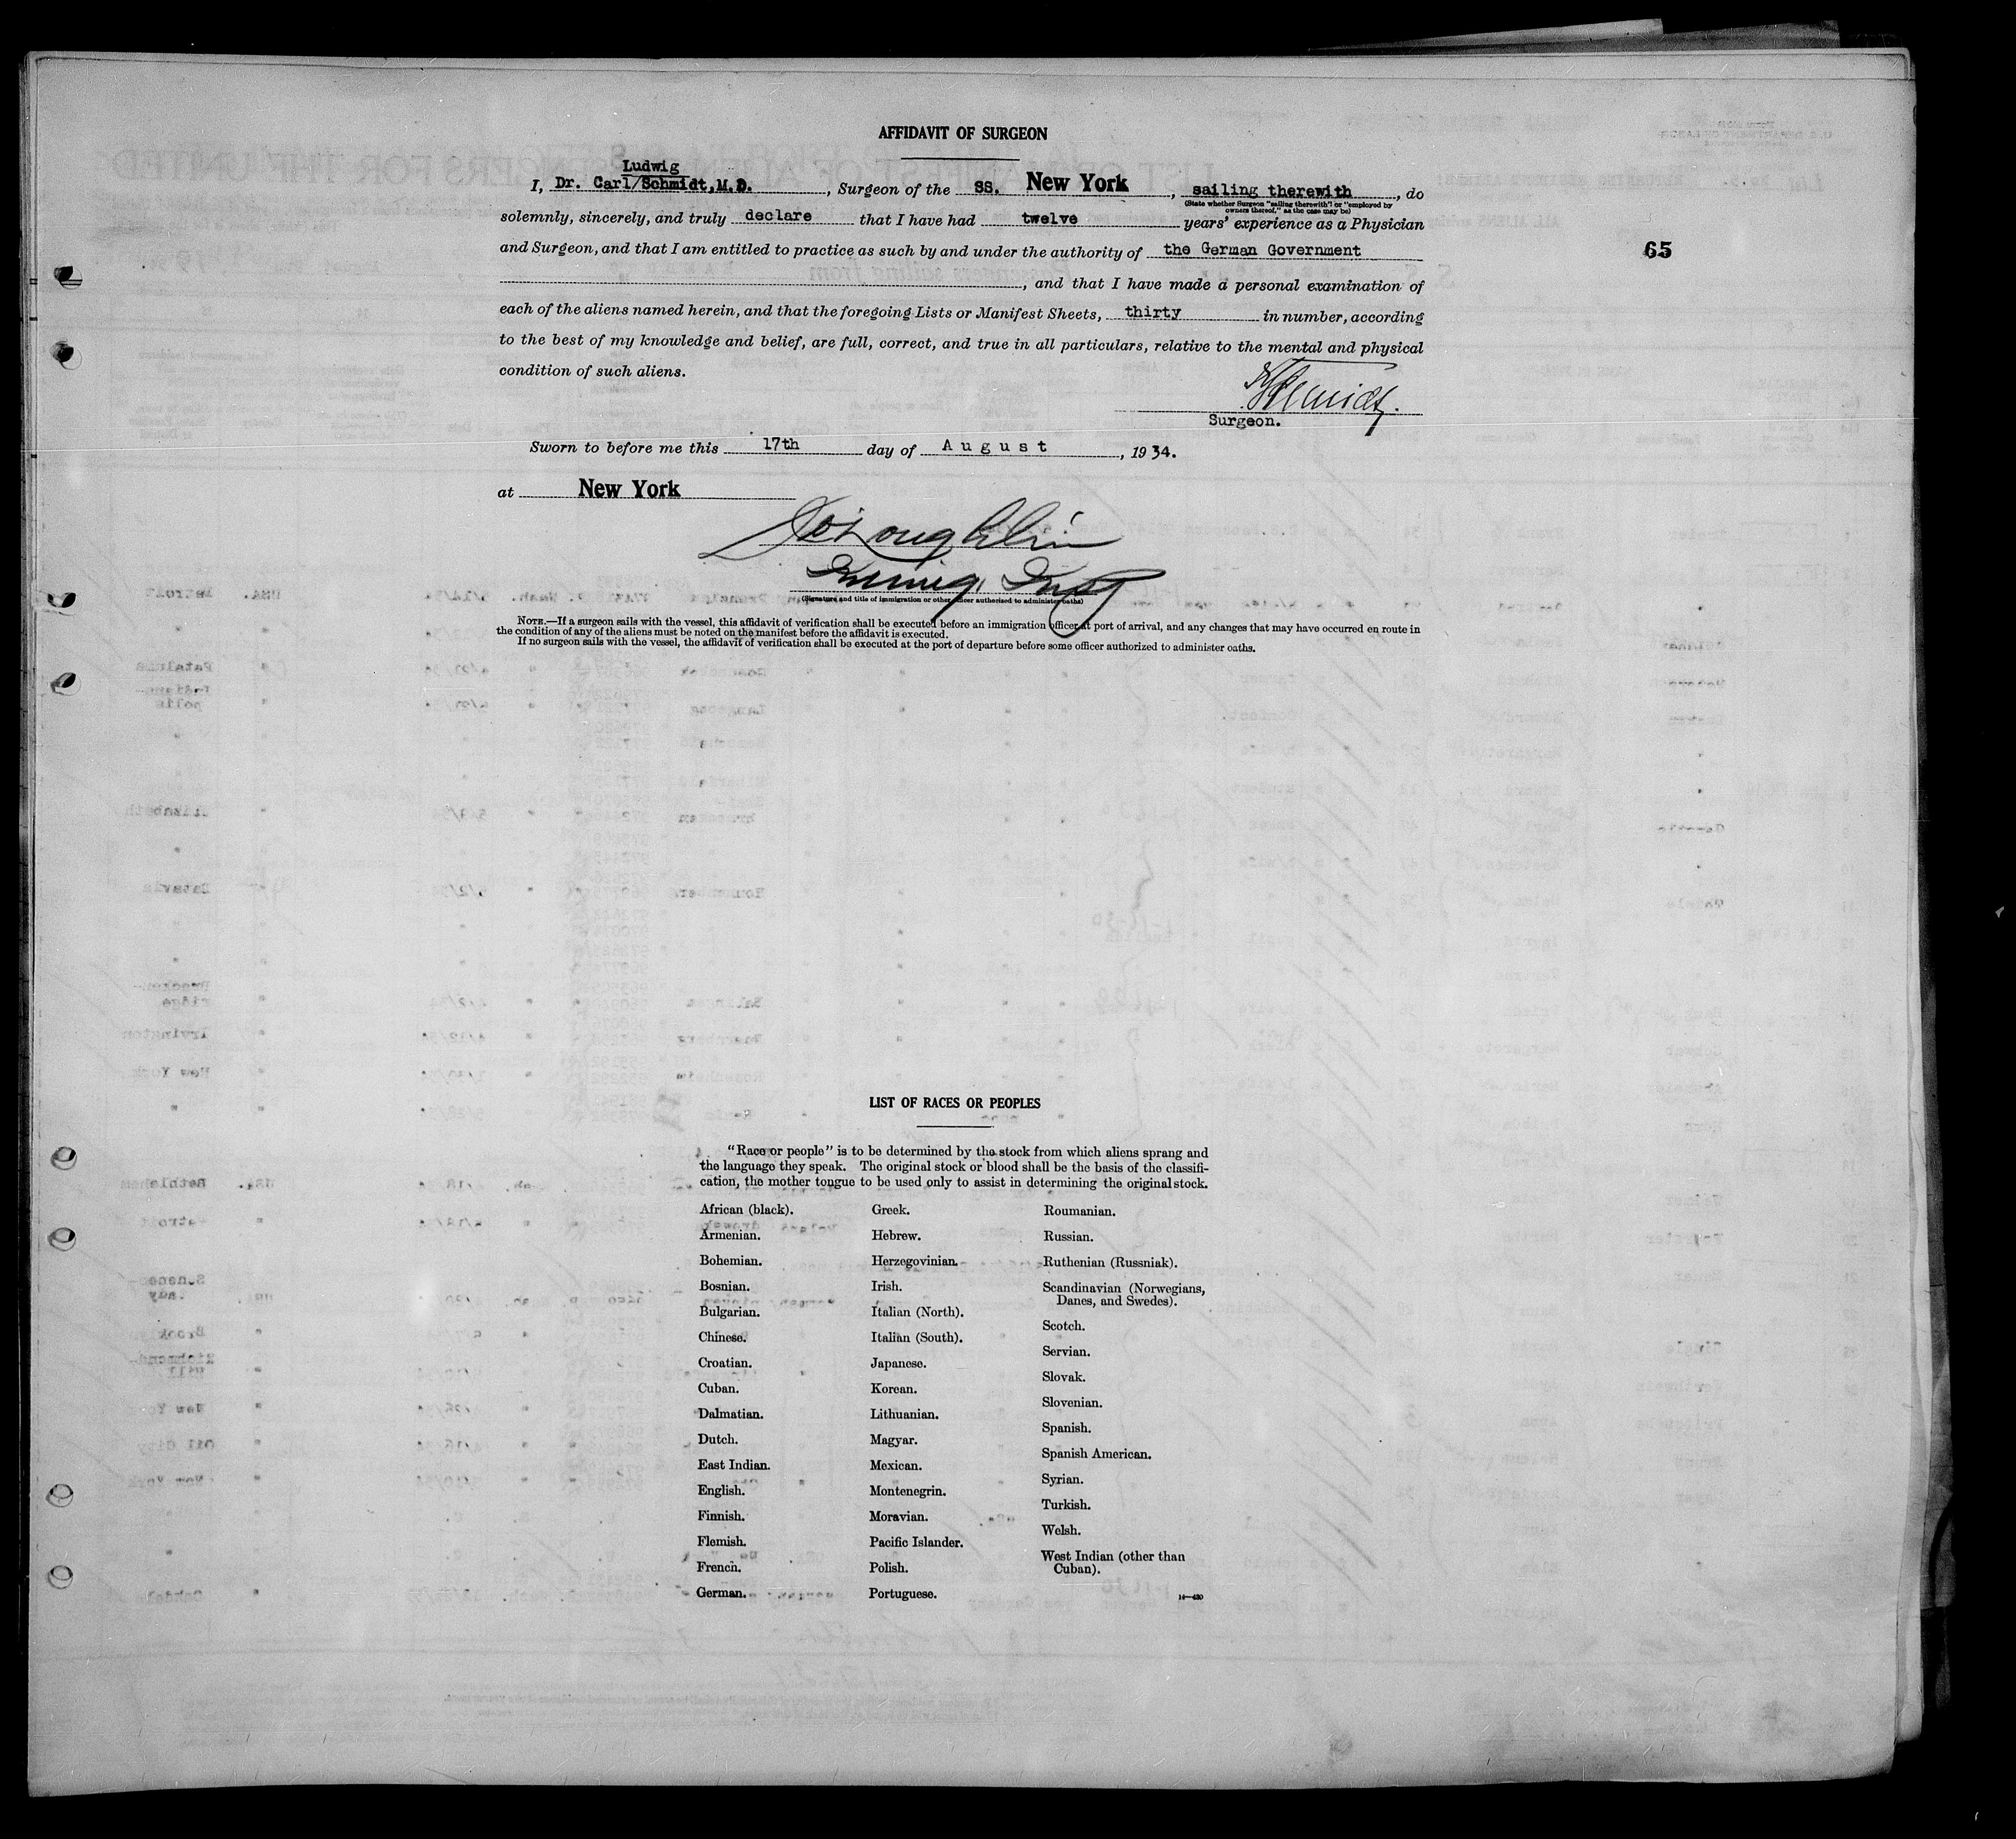 AFFIDAVIT OF SURGEON
Ludwig
I, Dr. Carl/Schmidt, M.D. , Surgeon of the SS. New York , sailing therewith , do
(State whether Surgeon "sailing therewith" or "employed by
owners thereof," as the case may be)
solemnly, sincerely, and truly declare that I have had twelve years' experience as a Physician
and Surgeon, and that I am entitled to practice as such by and under the authority of the German Government
65
, and that I have made a personal examination of
each of the aliens named herein, and that the foregoing Lists or Manifest Sheets, thirty in number, according
to the best of my knowledge and belief, are full, correct, and true in all particulars, relative to the mental and physical
condition of such aliens.
Schmidt.
Surgeon.
Sworn to before me this 17th day of August , 1934.
at New York
Immig. Insp
(Signature and title of immigration or other officer authorized to administer oaths)
NOTE.—If a surgeon sails with the vessel, this affidavit of verification shall be executed before an immigration officer at port of arrival, and any changes that may have occurred en route in
the condition of any of the aliens must be noted on the manifest before the affidavit is executed.
If no surgeon sails with the vessel, the affidavit of verification shall be executed at the port of departure before some officer authorized to administer oaths.
LIST OF RACES OR PEOPLES
"Race or people" is to be determined by the stock from which aliens sprang and
the language they speak. The original stock or blood shall be the basis of the classifi-
cation, the mother tongue to be used only to assist in determining the original stock.
African (black).
Armenian.
Bohemian.
Bosnian.
Bulgarian.
Chinese.
Croatian.
Cuban.
Dalmatian.
Dutch.
East Indian.
English.
Finnish.
Flemish.
French.
German.
Greek.
Hebrew.
Herzegovinian.
Irish.
Italian (North).
Italian (South).
Japanese.
Korean.
Lithuanian.
Magyar.
Mexican.
Montenegrin.
Moravian.
Pacific Islander.
Polish.
Portuguese.
Roumanian.
Russian.
Ruthenian (Russniak).
Scandinavian (Norwegians,
Danes, and Swedes).
Scotch.
Servian.
Slovak.
Slovenian.
Spanish.
Spanish American.
Syrian.
Turkish.
Welsh.
West Indian (other than
Cuban).